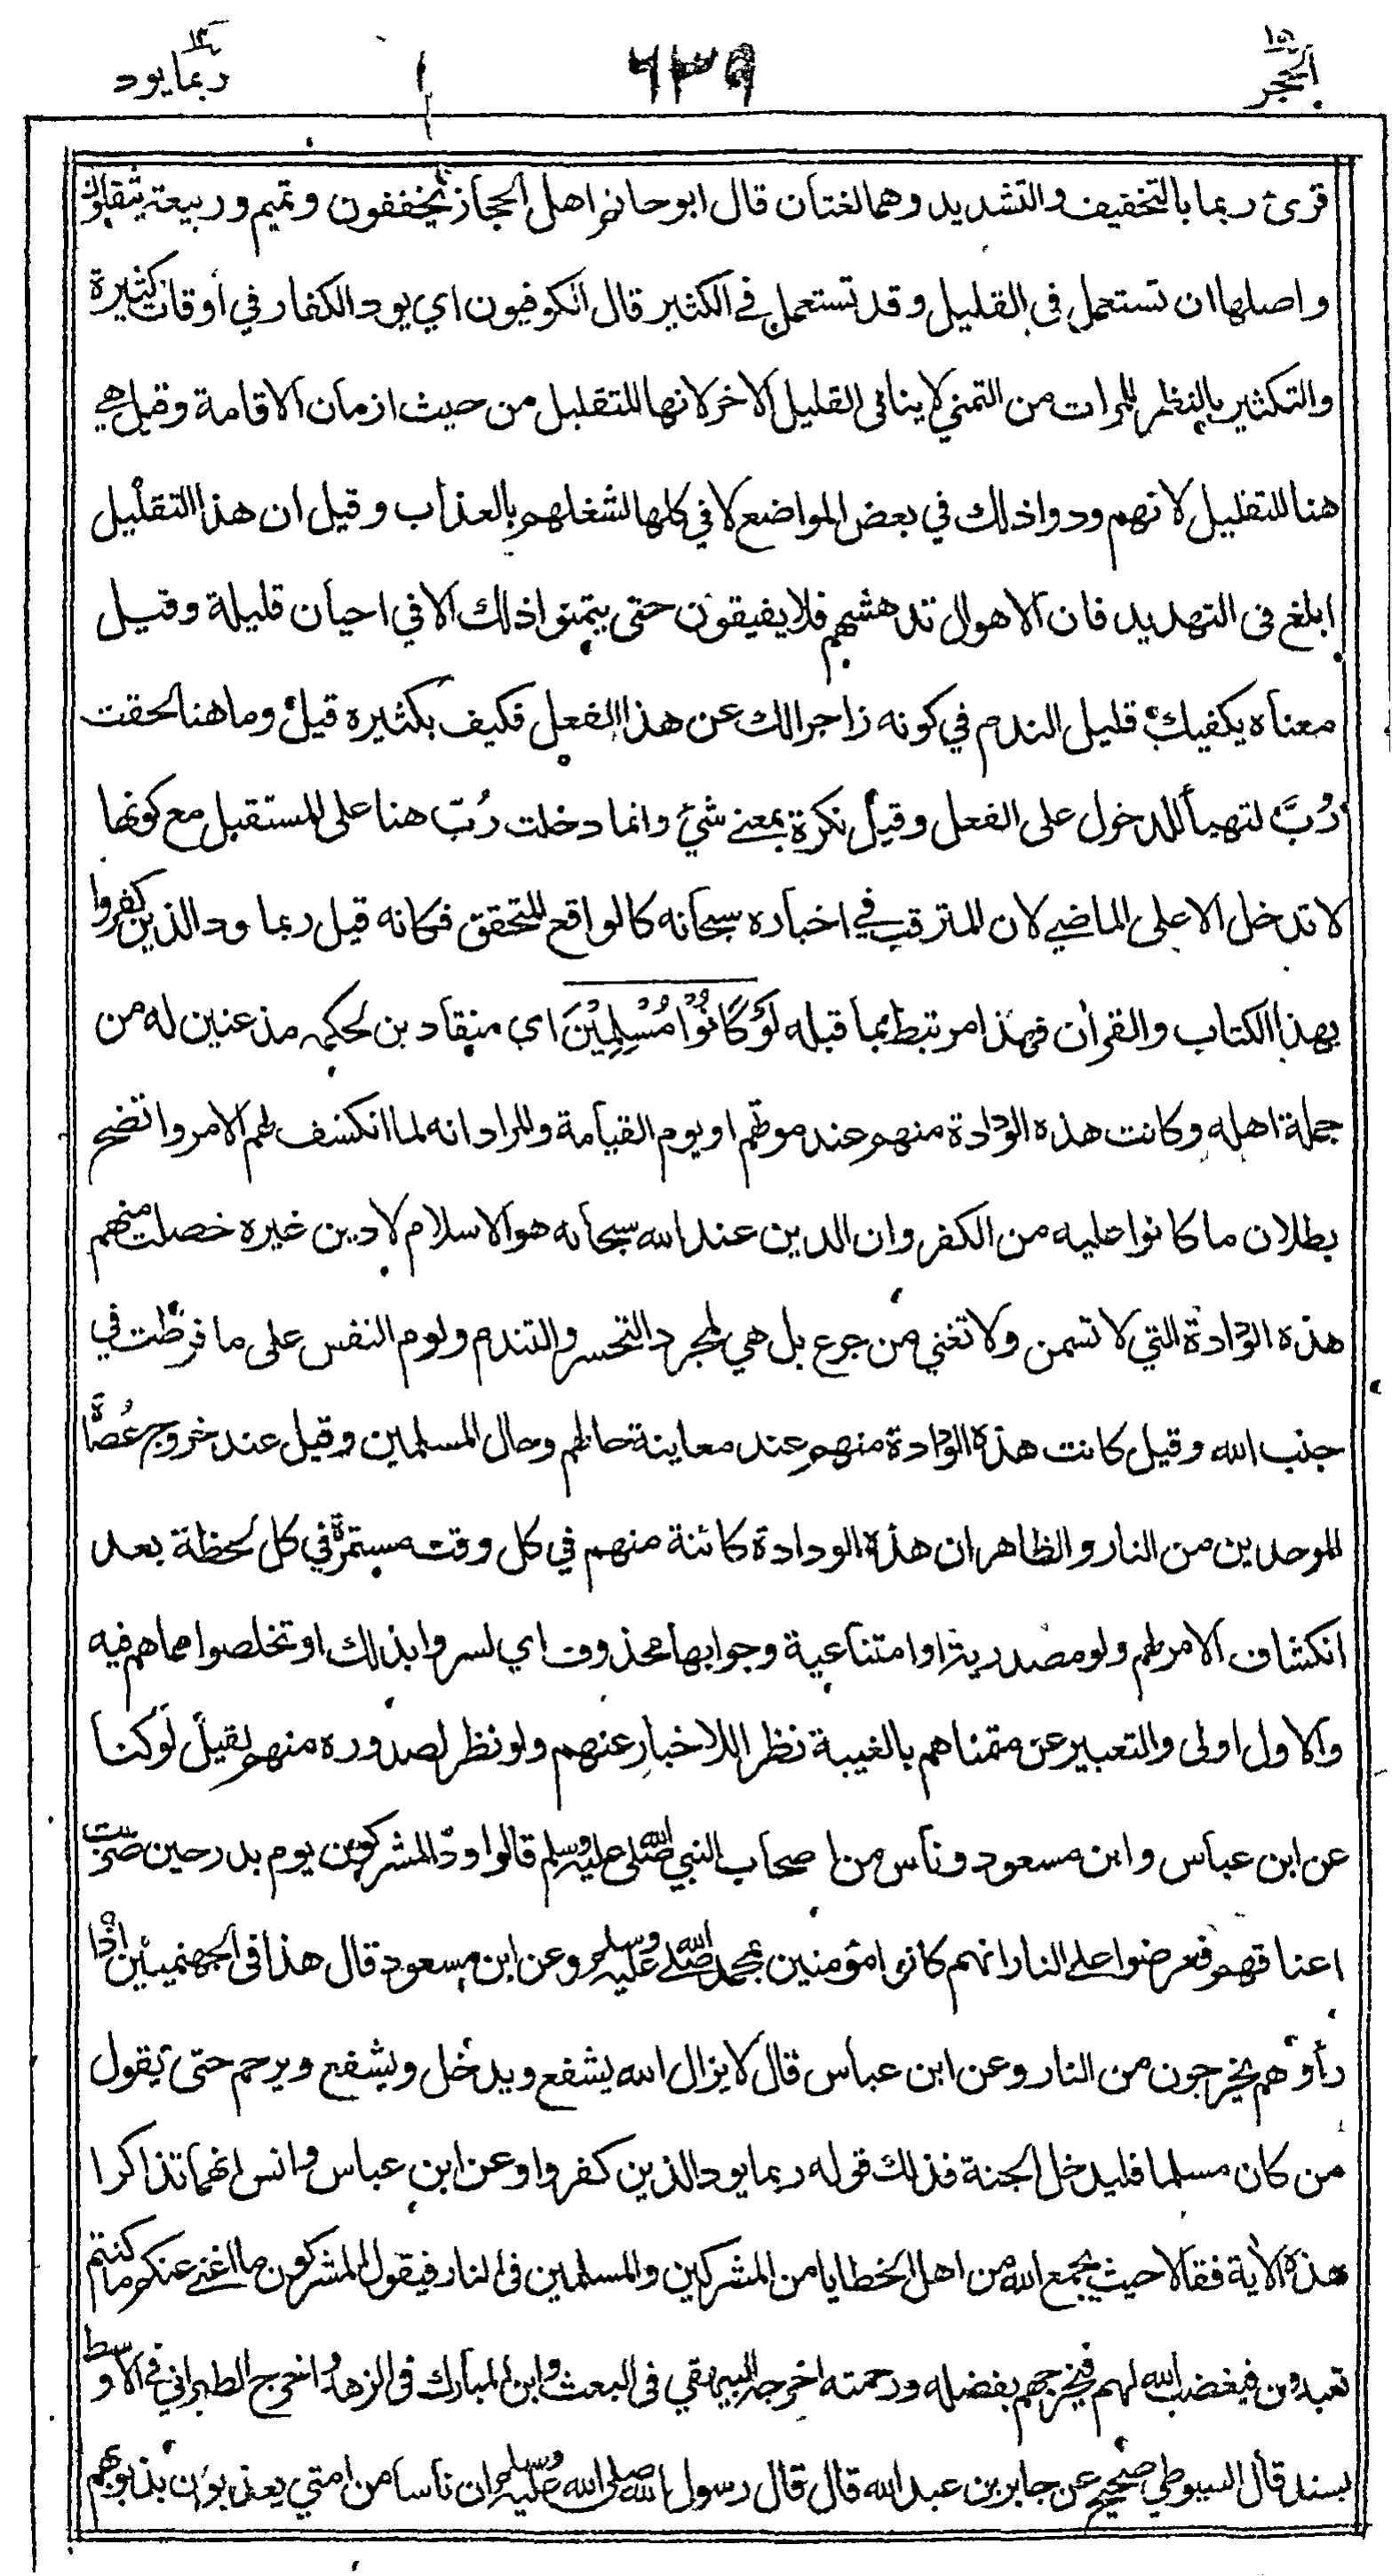 الحجر ١٥
٦٣٩
ربما يود ١٤
قرئ ربما بالتخفيف والتشديد وهما لغتان قال ابو حاتم اهل الحجاز يخففون وتميم وربيعة يثقلون
واصلها ان تستعمل في القليل وقد تستعمل في الكثير قال الكوفيون اي يود الكفار في أوقات كثيرة
والتكثير بالنظر للمرات من التمني لا ينافى القليل الاخر لانها للتقليل من حيث ازمان الاقامة وقيل هي
هنا للتقليل لانهم ودوا ذلك في بعض المواضع لا في كلها لشغلهم بالعذاب وقيل ان هذا التقليل
ابلغ فى التهديد فان الاهوال تدهشهم فلا يفيقون حتى يتمنوا ذلك الا في احيان قليلة وقيل
معناه يكفيك قليل الندم في كونه زاجرا لك عن هذا الفعل فكيف بكثيره قيل وما هنا لحقت
رُبَّ لتهيأ للدخول على الفعل وقيل نكرة بمعنى شيء وانما دخلت رُبّ هنا على المستقبل مع كونها
لا تدخل الا على الماضي لان المترقب في اخباره سبحانه كالواقع المتحقق فكانه قيل ربما ود الذين كفروا
بهذا الكتاب والقرأن فهذا مرتبط بما قبله لَوْ كَانُوْا مُسْلِمِيْنَ اي منقادين لحكمه مذعنين له من
جملة اهله وكانت هذه الودادة منهم عند موتهم او يوم القيامة والمراد انه لما انكشف لهم الامر واتضح
بطلان ما كانوا عليه من الكفر وان الدين عند الله سبحانه هو الاسلام لا دين غيره حصلت منهم
هذه الودادة التي لا تسمن ولا تغني من جوع بل هي لمجرد التحسر والتندم ولوم النفس على ما فرطت في
جنب الله وقيل كانت هذه الودادة منهم عند معاينة حالهم وحال المسلمين وقيل عند خروج عُصاة
الموحدين من النار والظاهر ان هذه الودادة كائنة منهم في كل وقت مستمرة في كل لحظة بعد
انكشاف الامر لهم ولو مصدرية او امتناعية وجوابها محذوف اي لسروا بذلك او تخلصوا مما هم فيه
والاول اولى والتعبير عن متمناهم بالغيبة نظرا للاخبار عنهم ولو نظر لصدوره منهم لقيل لو كنا
عن ابن عباس وابن مسعود وناس من اصحاب النبي صلى الله عليه وسلم قالوا ودّ المشركون يوم بدر حين ضربت
اعناقهم فعرضوا على النار انهم كانوا مؤمنين بمحمد صلى الله عليه وسلم وعن ابن مسعود قال هذا في الجهنميين اذا
رأوهم يخرجون من النار وعن ابن عباس قال لا يزال الله يشفع ويدخل ويشفع ويرحم حتى يقول
من كان مسلما فليدخل الجنة فذلك قوله ربما يود الذين كفروا وعن ابن عباس وانس انهما تذاكرا
هذه الاٰية فقالا حيث يجمع الله من اهل الخطايا من المشركين والمسلمين فى النار فيقول المشركون ما اغنى عنكم ما كنتم
تعبدون فيغضب الله لهم فيخرجهم بفضله ورحمته اخرجه البيهقي فى البعث وابن المبارك فى الزهد واخرج الطبراني في الاوسط
بسند قال السيوطي صحيح عن جابر بن عبد الله قال قال رسول الله صلى الله عليه وسلم ان ناسا من امتي يعذبون بذنوبهم